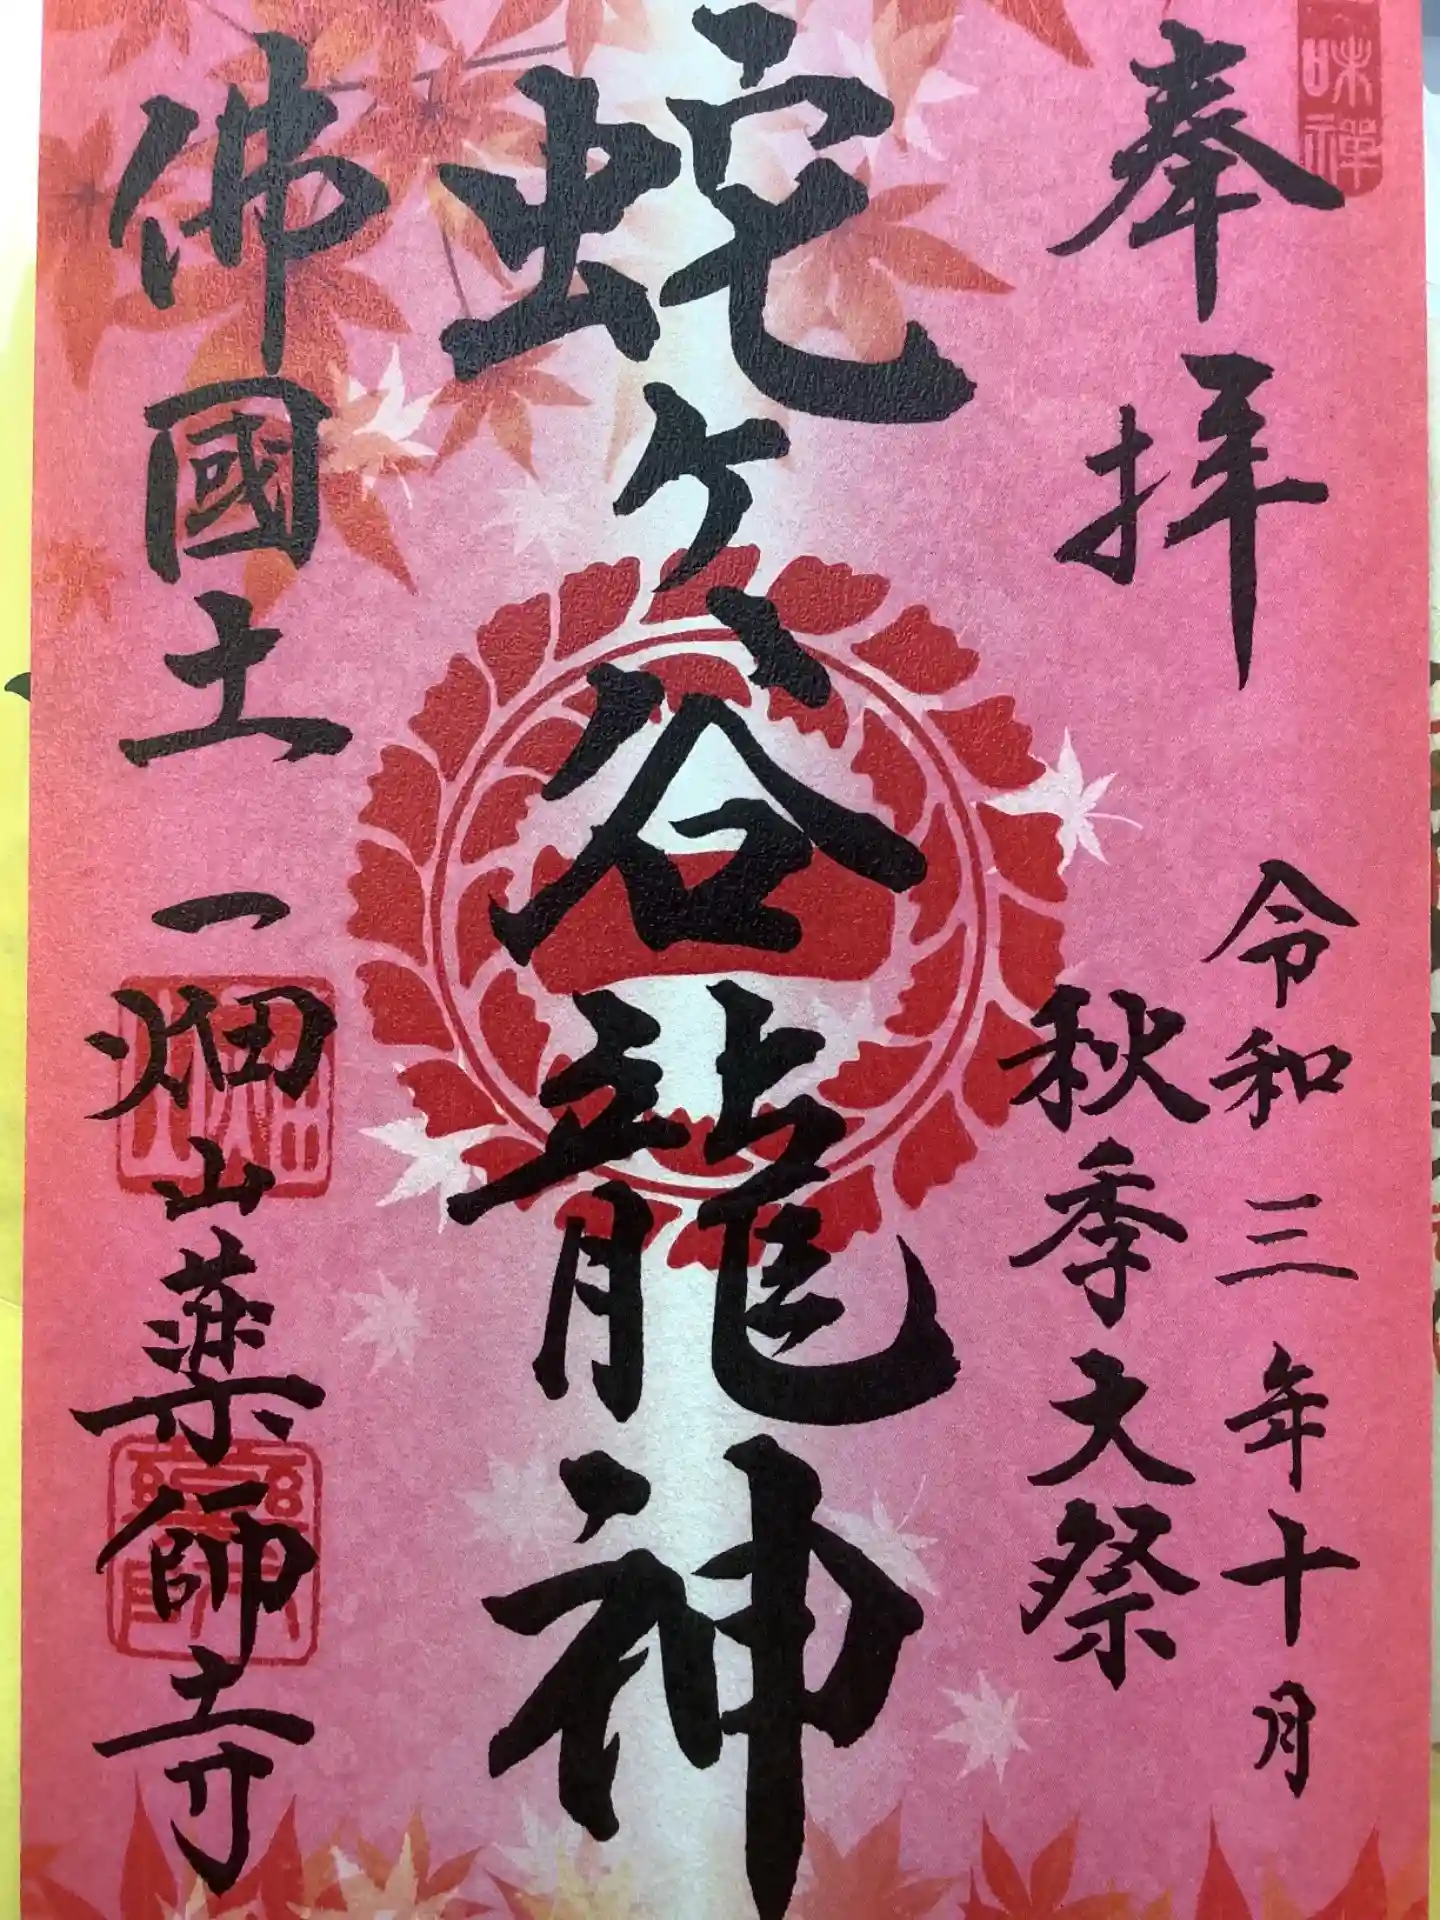 奉拝
味禅
令和三年十月
秋季大祭
蛇ヶ谷龍神
佛國土
一畑山薬師寺